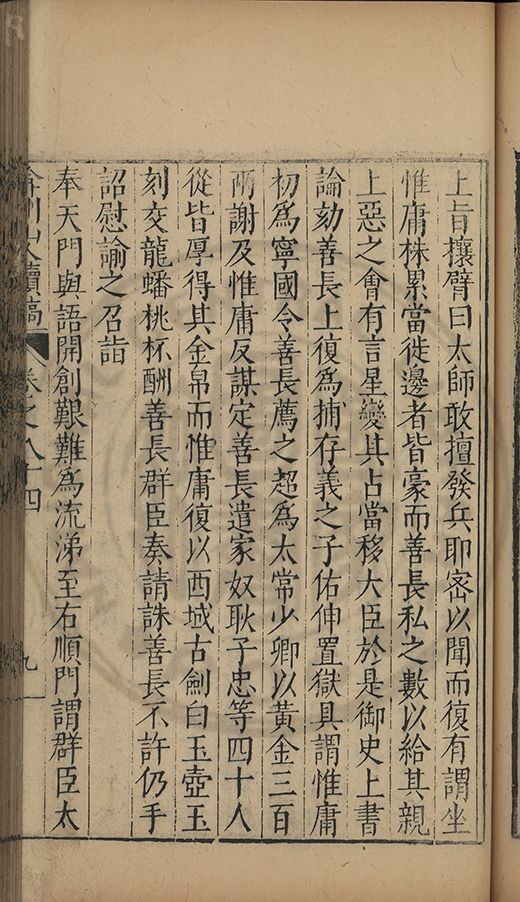 上旨攘臂曰太師敢擅發兵耶密以聞而復有謂坐
惟庸株累當徙邊者皆豪而善長私之數以給其親
上惡之會有言星變其占當移大臣於是御史上書
論劾善長上復爲捕存義之子佑伸置獄具謂惟庸
初爲寧國令善長薦之超爲太常少卿以黃金三百
兩謝及惟庸反謀定善長遣家奴耿子忠等四十人
從皆厚得其金帛而惟庸復以西域古劍白玉壺玉
刻交龍蟠桃杯酬善長群臣奏請誅善長不許仍手
詔慰諭之召詣
奉天門與語開創艱難爲流涕至右順門謂群臣太
弇州山人續稿 卷之八十四 九